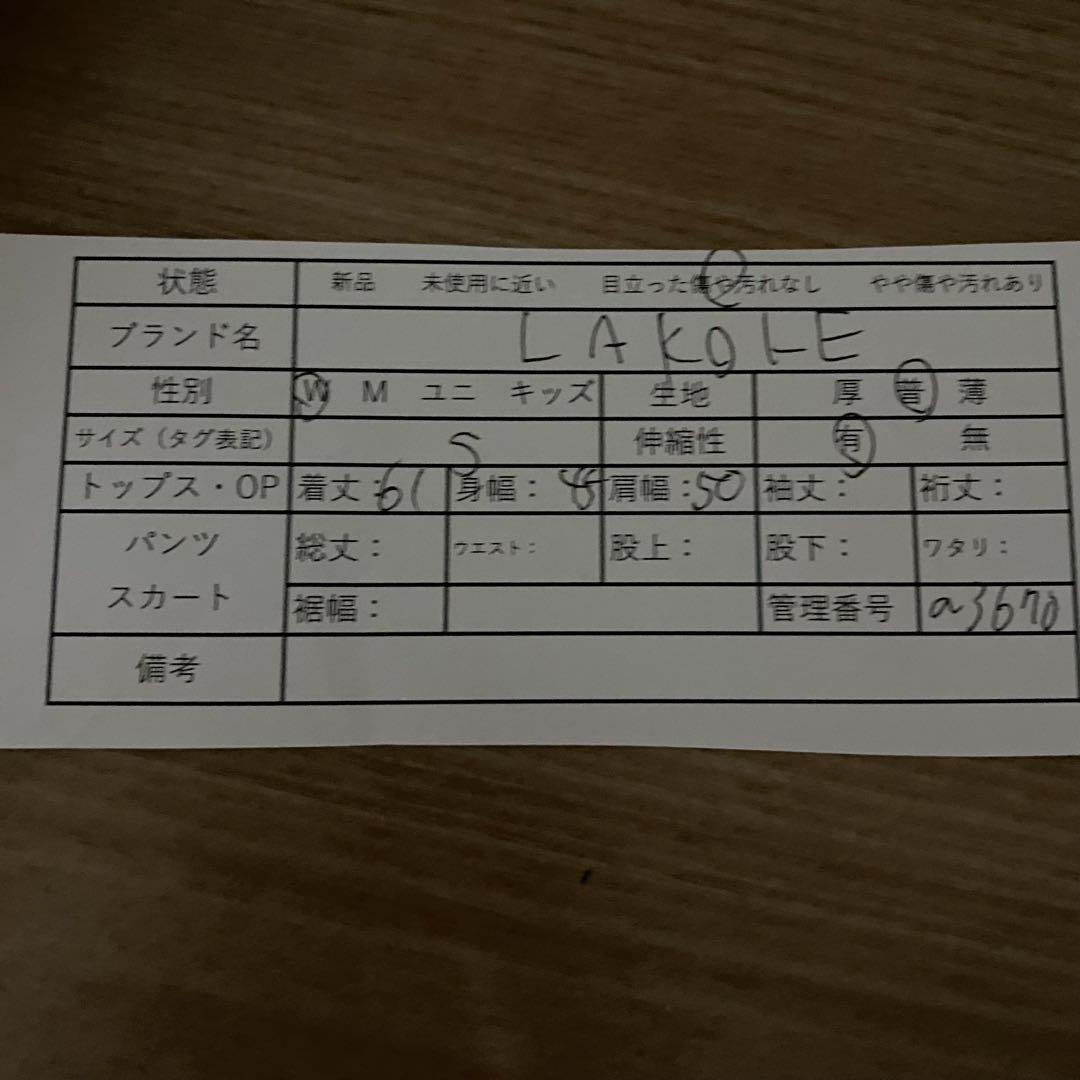 状態 新品 未使用に近い 目立った傷や汚れなし やや傷や汚れあり
ブランド名 LAKOLE
性別 W M ユニ キッズ 生地 厚 普 薄
サイズ（タグ表記） S 伸縮性 有 無
トップス・OP 着丈：61 身幅： 肩幅：50 袖丈： 裄丈：
パンツ 総丈： ウエスト： 股上： 股下： ワタリ：
スカート 裾幅： 管理番号 a3670
備考